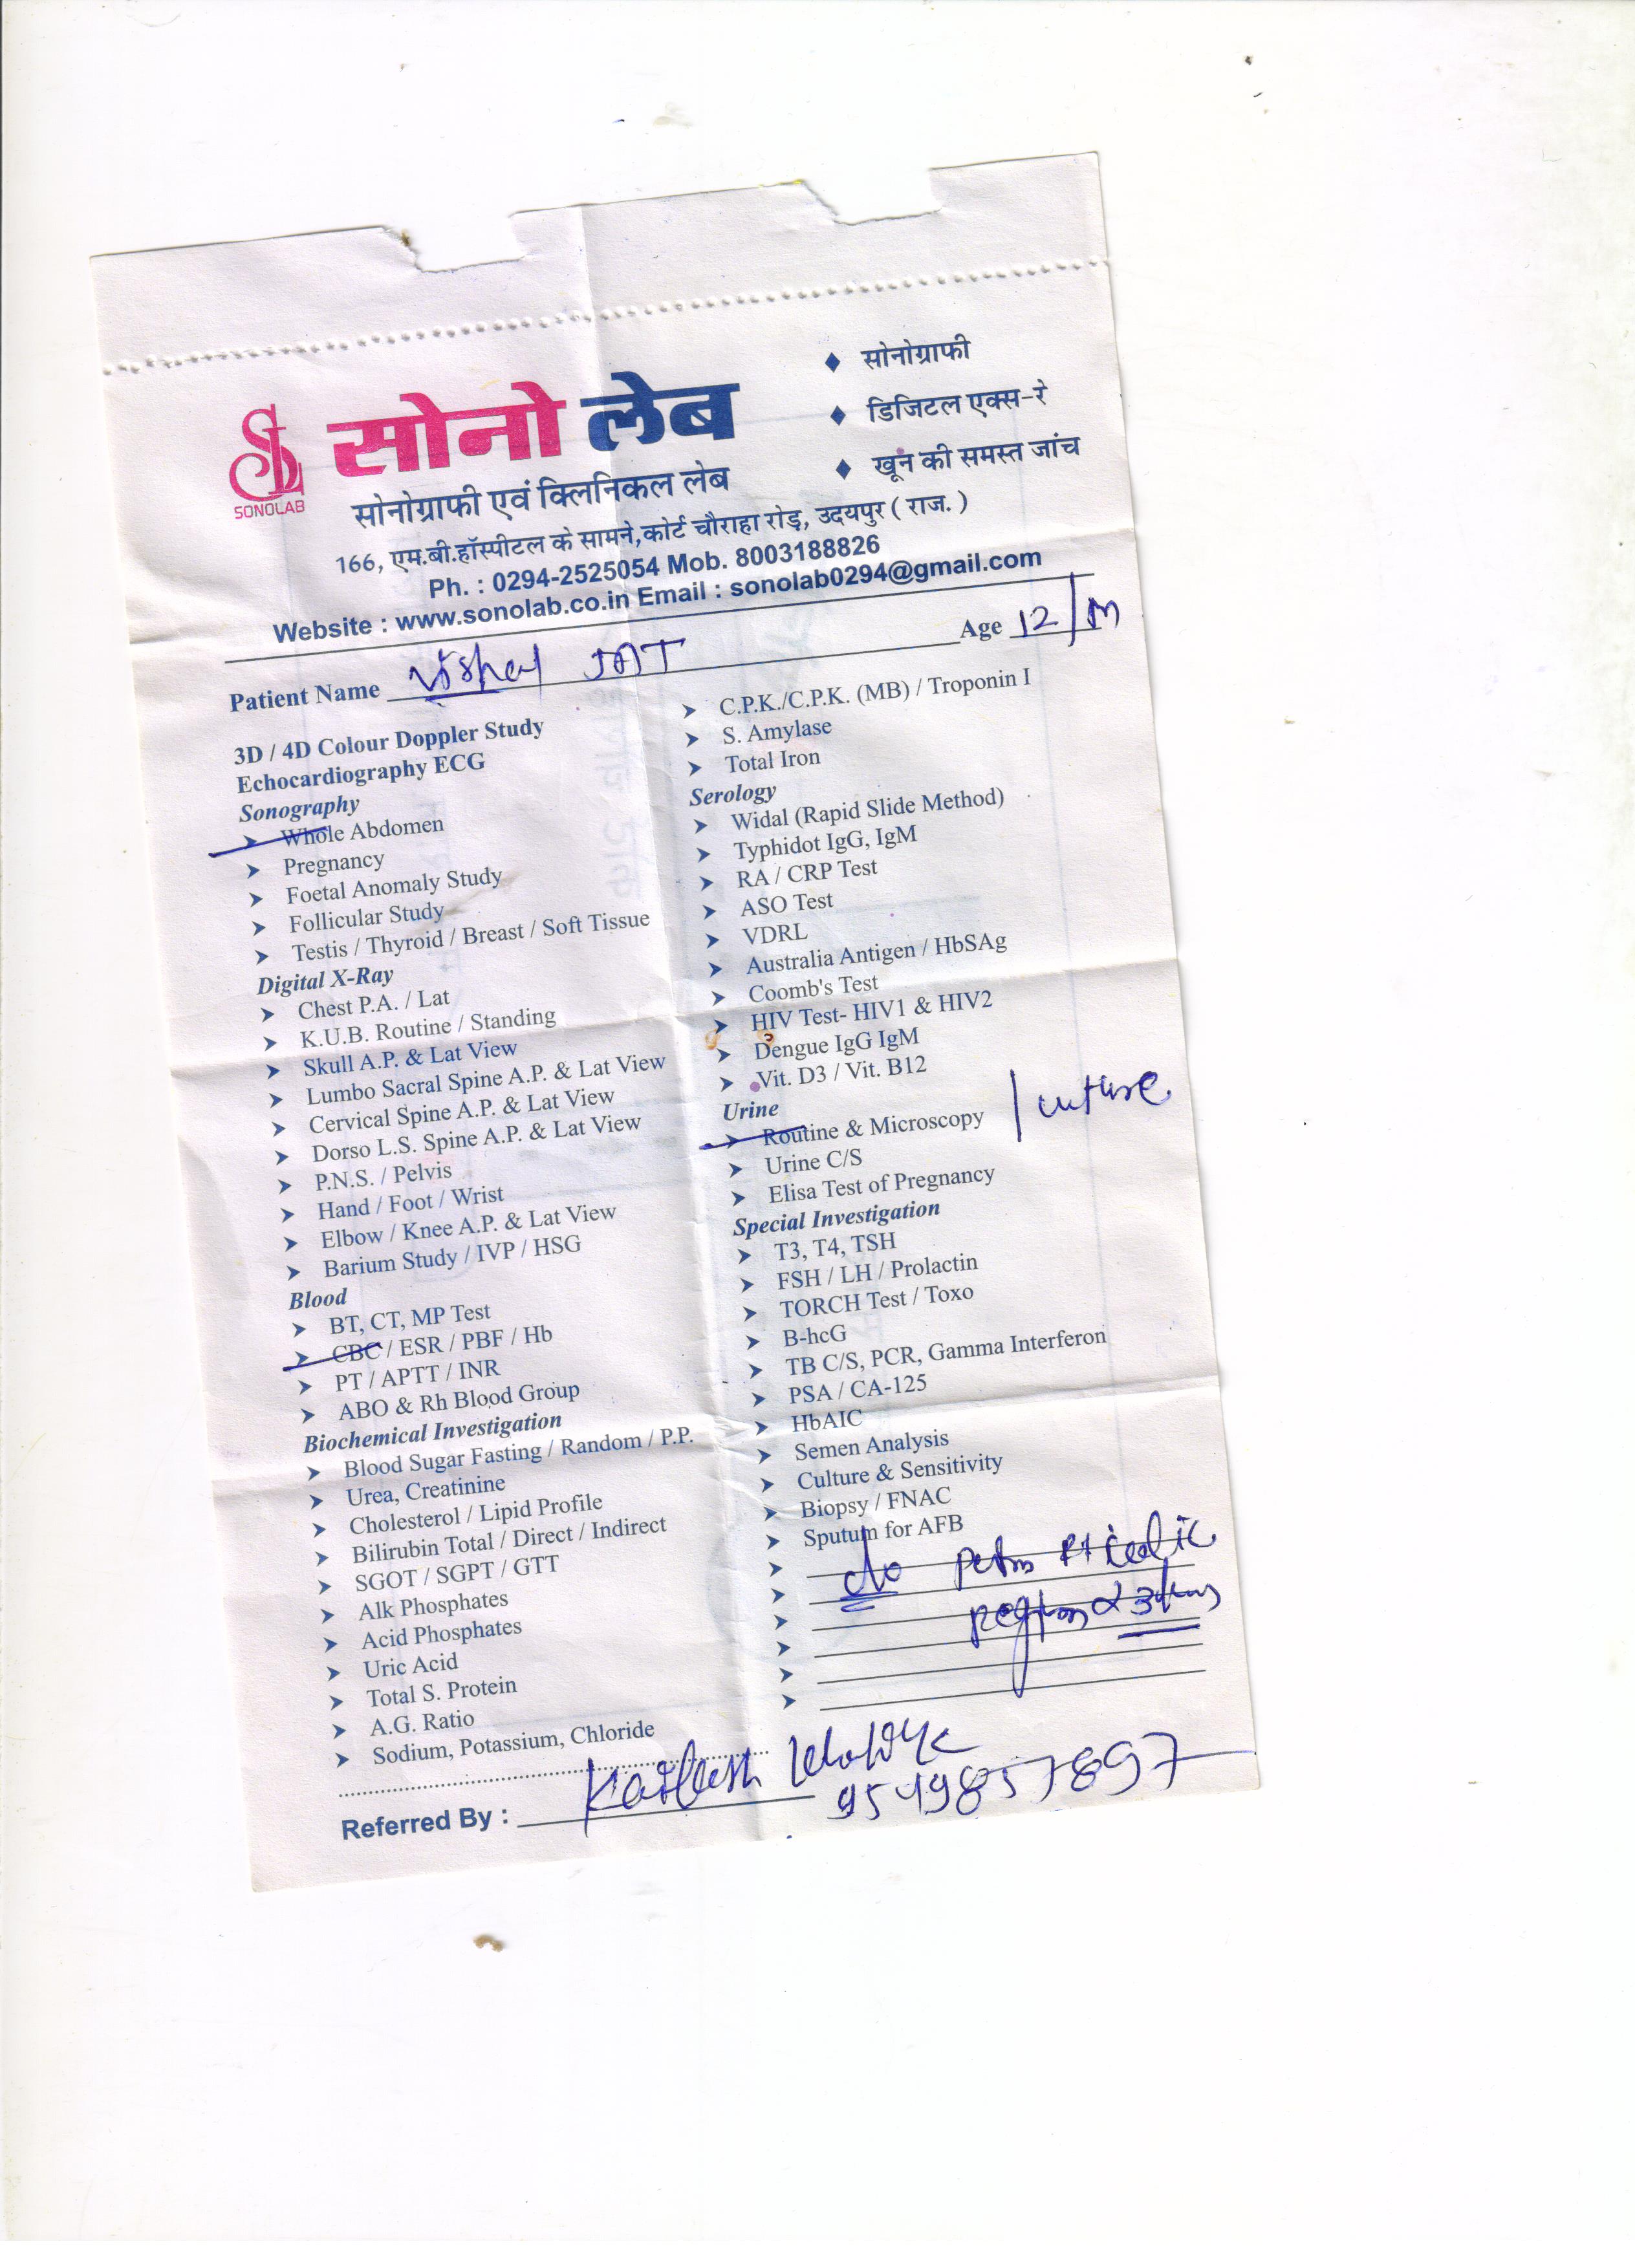 सोनो लेब
SONOLAB
◆ सोनोग्राफी
◆ डिजिटल एक्स-रे
◆ खून की समस्त जांच
सोनोग्राफी एवं क्लिनिकल लेब
166, एम.बी.हॉस्पीटल के सामने,कोर्ट चौराहा रोड़, उदयपुर ( राज. )
Ph. : 0294-2525054 Mob. 8003188826
Website : www.sonolab.co.in Email : sonolab0294@gmail.com
Patient Name JAT Age 12/M
3D / 4D Colour Doppler Study
Echocardiography ECG
Sonography
➤ Whole Abdomen
➤ Pregnancy
➤ Foetal Anomaly Study
➤ Follicular Study
➤ Testis / Thyroid / Breast / Soft Tissue
Digital X-Ray
➤ Chest P.A. / Lat
➤ K.U.B. Routine / Standing
➤ Skull A.P. & Lat View
➤ Lumbo Sacral Spine A.P. & Lat View
➤ Cervical Spine A.P. & Lat View
➤ Dorso L.S. Spine A.P. & Lat View
➤ P.N.S. / Pelvis
➤ Hand / Foot / Wrist
➤ Elbow / Knee A.P. & Lat View
➤ Barium Study / IVP / HSG
Blood
➤ BT, CT, MP Test
➤ CBC / ESR / PBF / Hb
➤ PT / APTT / INR
➤ ABO & Rh Blood Group
Biochemical Investigation
➤ Blood Sugar Fasting / Random / P.P.
➤ Urea, Creatinine
➤ Cholesterol / Lipid Profile
➤ Bilirubin Total / Direct / Indirect
➤ SGOT / SGPT / GTT
➤ Alk Phosphates
➤ Acid Phosphates
➤ Uric Acid
➤ Total S. Protein
➤ A.G. Ratio
➤ Sodium, Potassium, Chloride
➤ C.P.K./C.P.K. (MB) / Troponin I
➤ S. Amylase
➤ Total Iron
Serology
➤ Widal (Rapid Slide Method)
➤ Typhidot IgG, IgM
➤ RA / CRP Test
➤ ASO Test
➤ VDRL
➤ Australia Antigen / HbSAg
➤ Coomb's Test
➤ HIV Test- HIV1 & HIV2
➤ Dengue IgG IgM
➤ Vit. D3 / Vit. B12
Urine
➤ Routine & Microscopy /
➤ Urine C/S
➤ Elisa Test of Pregnancy
Special Investigation
➤ T3, T4, TSH
➤ FSH / LH / Prolactin
➤ TORCH Test / Toxo
➤ B-hcG
➤ TB C/S, PCR, Gamma Interferon
➤ PSA / CA-125
➤ HbAIC
➤ Semen Analysis
➤ Culture & Sensitivity
➤ Biopsy / FNAC
➤ Sputum for AFB
c/o
Referred By :
9549857897